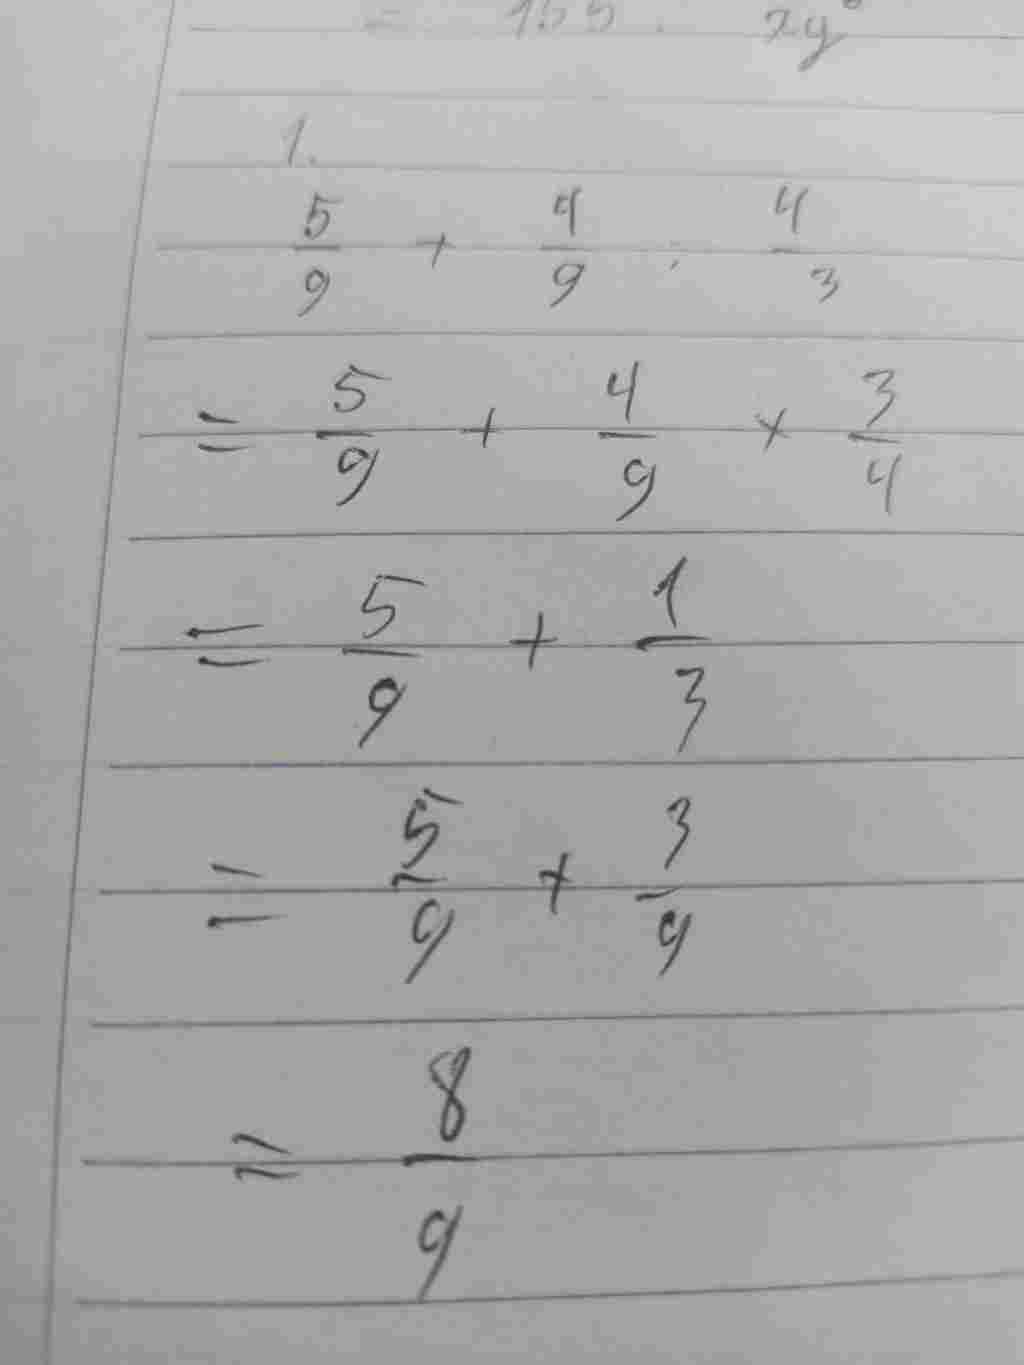 1.
5/9 + 4/9 : 4/3
= 5/9 + 4/9 × 3/4
= 5/9 + 1/3
= 5/9 + 3/9
= 8/9